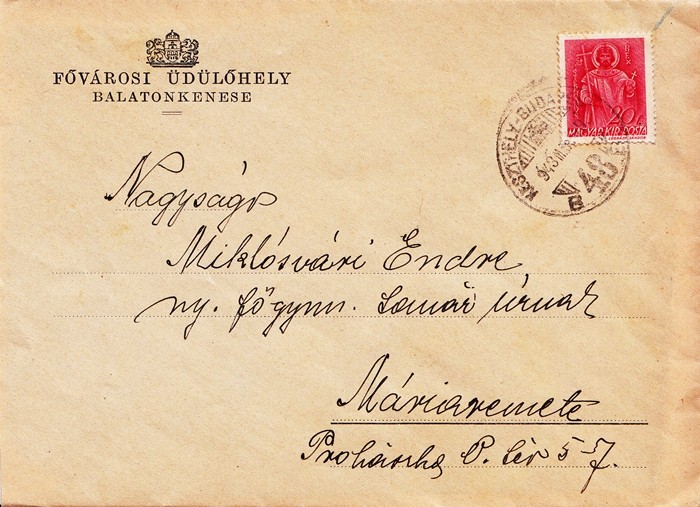 FŐVÁROSI ÜDÜLŐHELY
BALATONKENESE
REX
20 f
MAGYAR KIR. POSTA
KESZTHELY-BUDA
943
48
B
Nagyságos
Miklósvári Endre
ny. főgymn. tanár úrnak
Máriaremete
Prohászka O. tér 5-7.